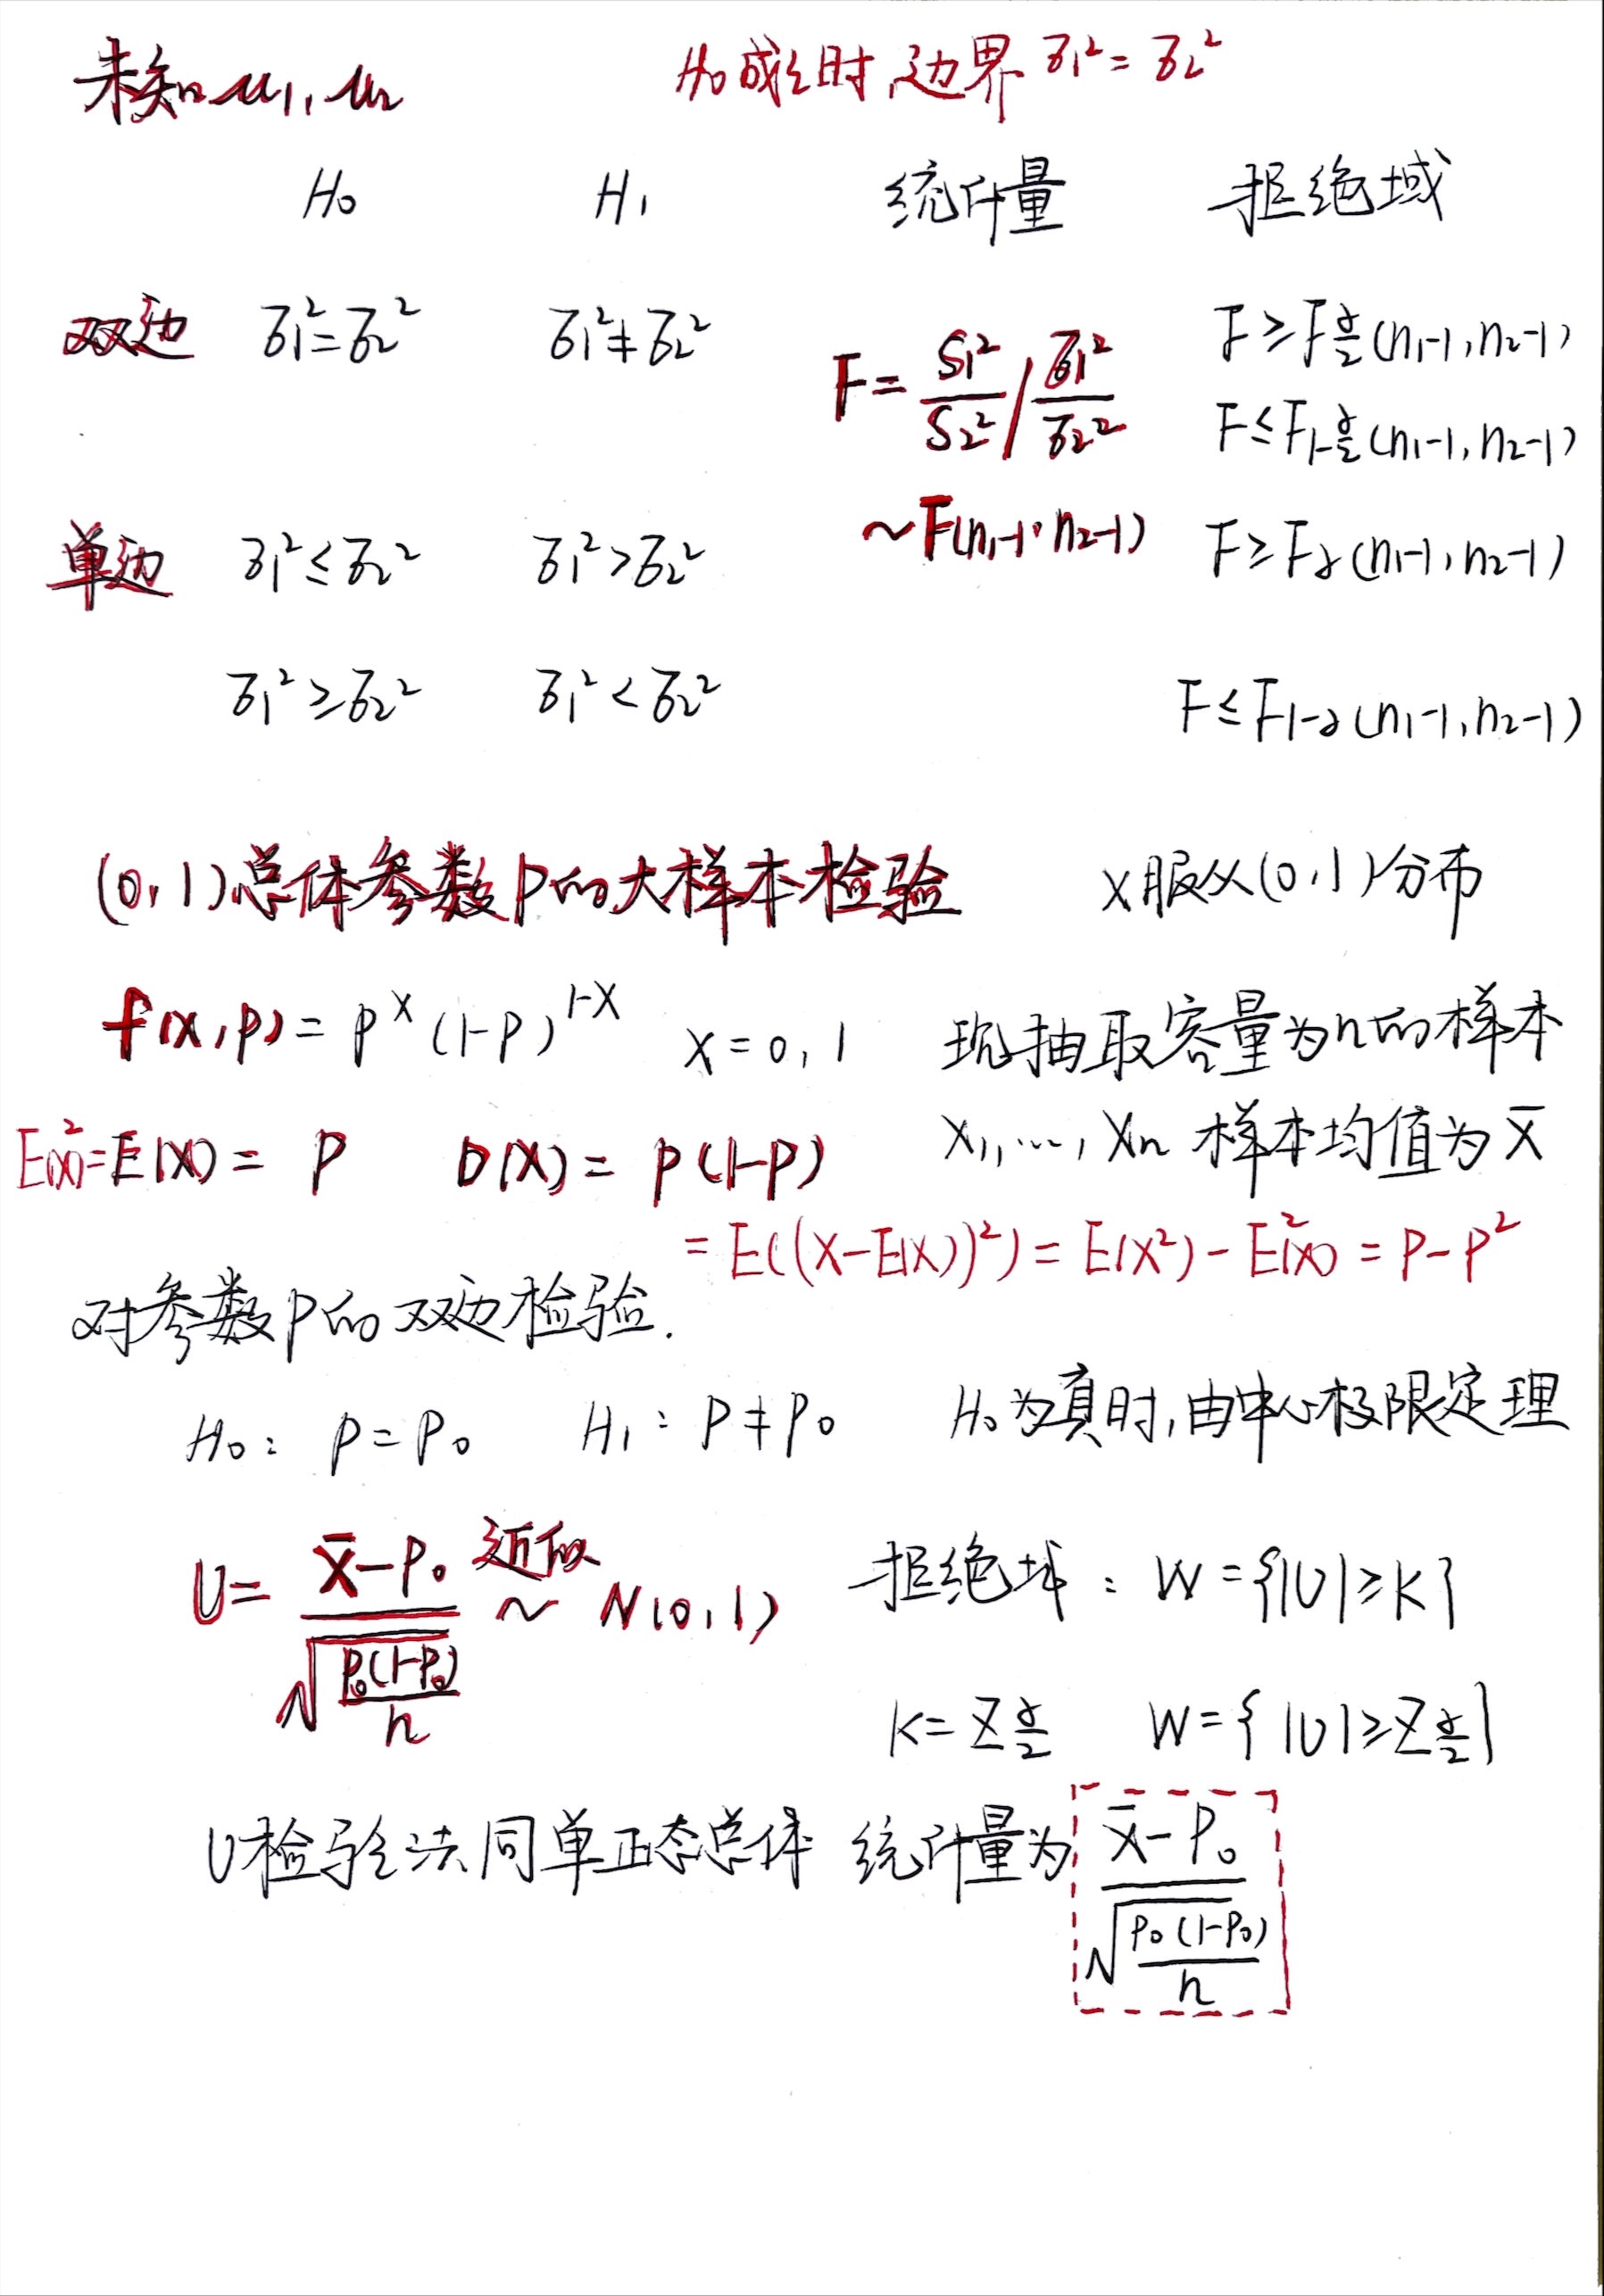 未知μ₁, μ₂ H₀成立时,边界 σ₁² = σ₂²
H₀ H₁ 统计量 拒绝域
双边 σ₁² = σ₂² σ₁² ≠ σ₂² F = S₁²/S₂² / σ₁²/σ₂² F ≥ F_{α/2}(n₁-1, n₂-1)
F ≤ F_{1-α/2}(n₁-1, n₂-1)
~F(n₁-1, n₂-1)
单边 σ₁² ≤ σ₂² σ₁² > σ₂² F ≥ F_α(n₁-1, n₂-1)
σ₁² ≥ σ₂² σ₁² < σ₂² F ≤ F_{1-α}(n₁-1, n₂-1)
(0,1)总体参数P的大样本检验 X服从(0,1)分布
f(x,p) = p^x (1-p)^{1-x} x = 0, 1 现抽取容量为n的样本
E(x²)=E(x) = P D(x) = p(1-p) X₁, ..., Xn 样本均值为 X̄
= E((X-E(X))²) = E(X²) - E²(X) = P-P²
对参数P的双边检验.
H₀: P = P₀ H₁: P ≠ P₀ H₀为真时,由中心极限定理
U = (X̄-P₀)/√(P₀(1-P₀)/n) 近似~ N(0,1) 拒绝域: W = {|U| ≥ K}
K = Z_{α/2} W = {|U| ≥ Z_{α/2}}
U检验法同单正态总体 统计量为 (X̄-P₀)/√(P₀(1-P₀)/n)